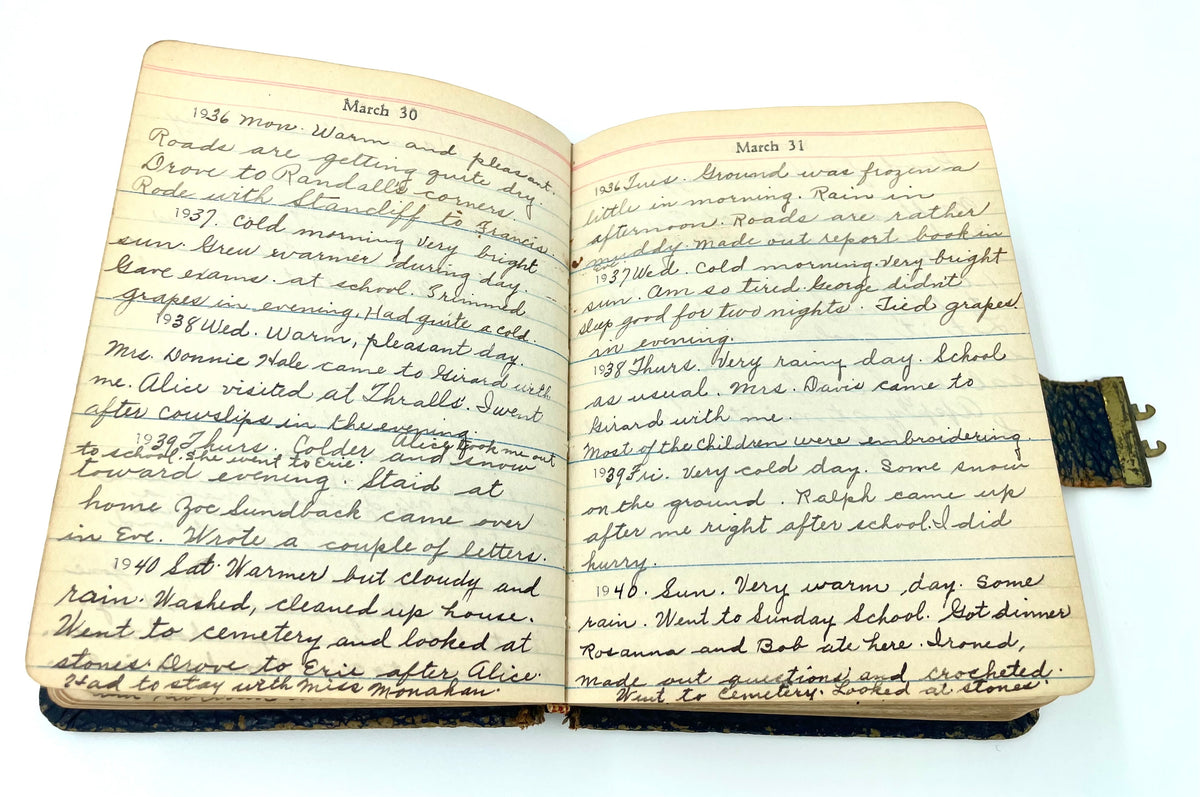 March 30
1936 Mon. Warm and pleasant.
Roads are getting quite dry.
Drove to Randall's corners.
Rode with Stancliff to Francis
1937. Cold morning very bright
sun. Grew warmer during day.
Gave exams. at school. Trimmed
grapes in evening. Had quite a cold.
1938 Wed. Warm, pleasant day.
Mrs. Donnie Hale came to Girard with
me. Alice visited at Thralls'. I went
after cowslips in the evening.
1939 Thurs. Colder and snow
Alice took me out
to school. She went to Erie.
toward evening. Staid at
home Zoe Sundback came over
in Eve. Wrote a couple of letters.
1940 Sat. Warmer but cloudy and
rain. Washed, cleaned up house.
Went to cemetery and looked at
stones. Drove to Erie after Alice.
Had to stay with Miss Monahan.
March 31
1936 Tues. Ground was frozen a
little in morning. Rain in
afternoon. Roads are rather
muddy. Made out report book in
eve.
1937 Wed. Cold morning. Very bright
sun. Am so tired. George didn't
sleep good for two nights. Tied grapes
in evening.
1938 Thurs. Very rainy day. School
as usual. Mrs. Davis came to
Girard with me.
Most of the children were embroidering.
1939 Fri. Very cold day. Some snow
on the ground. Ralph came up
after me right after school. I did
hurry.
1940. Sun. Very warm day. Some
rain. Went to Sunday School. Got dinner
Rosanna and Bob ate here. Ironed,
made out questions and crocheted.
Went to Cemetery. Looked at stones.